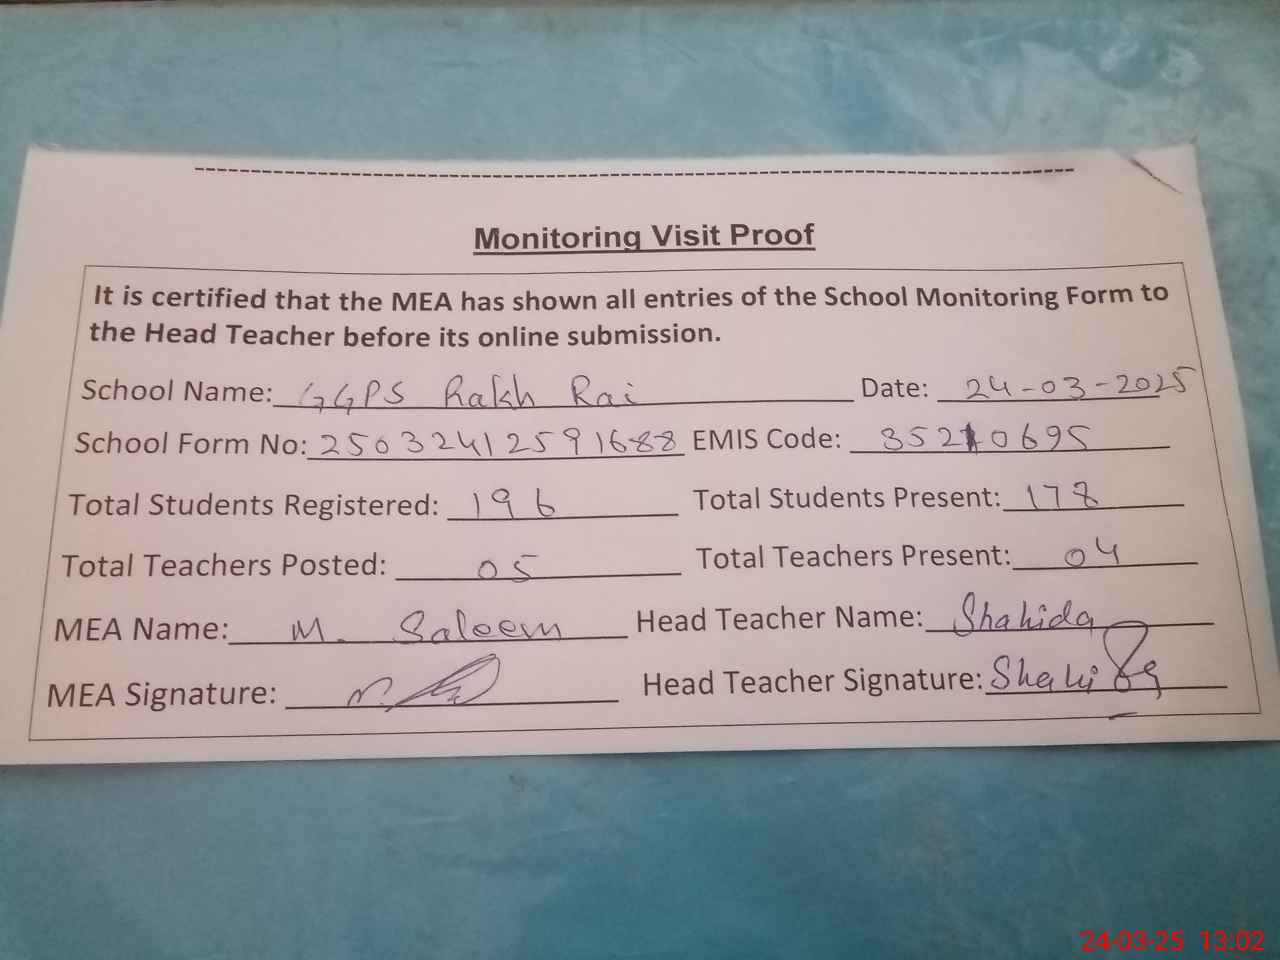 Monitoring Visit Proof
It is certified that the MEA has shown all entries of the School Monitoring Form to
the Head Teacher before its online submission.
School Name: GGPS Rakh Rai Date: 24-03-2025
School Form No: 25032412591688 EMIS Code: 35210695
Total Students Registered: 196 Total Students Present: 178
Total Teachers Posted: 05 Total Teachers Present: 04
MEA Name: M. Saleem Head Teacher Name: Shahida
MEA Signature: Head Teacher Signature:
24-03-25 13:02